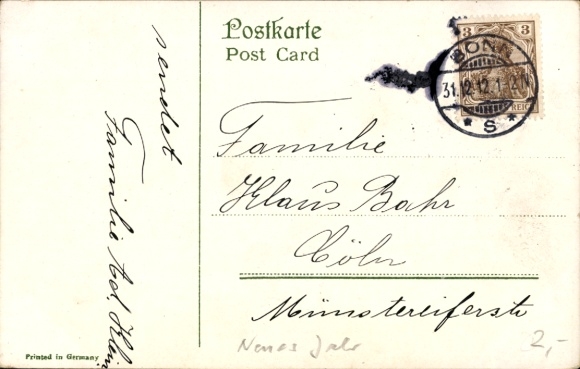 Postkarte
Post Card
3 3
BONN
31.12.12.1-2N
* S *
REICH
sendet
Familie Ad. Klein.
Familie
Klaus Bahr
Cöln
Münstereiferstr
Neues Jahr
2,-
Printed in Germany